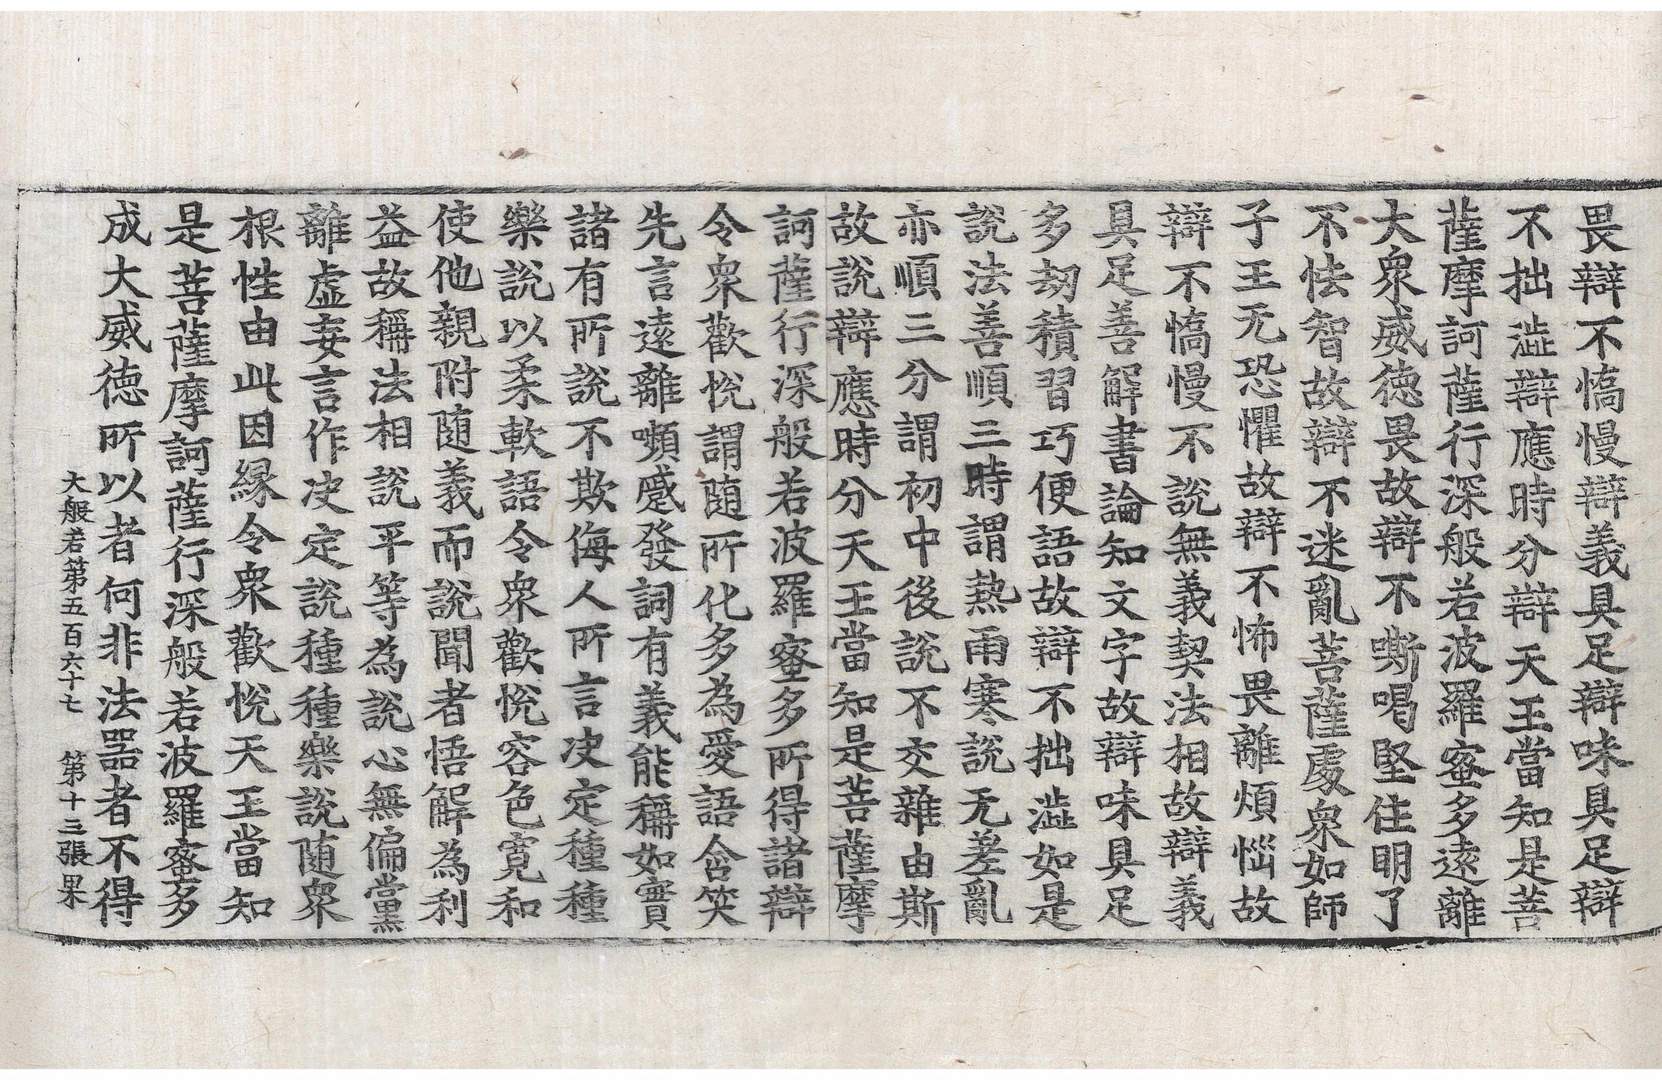 畏辯不憍慢辯義具足辯味具足辯
不拙澁辯應時分辯天王當知是菩
薩摩訶薩行深般若波羅蜜多遠離
大衆威德畏故辯不嘶喝堅住明了
不怯智故辯不迷亂菩薩處衆如師
子王无恐懼故辯不怖畏離煩惱故
辯不憍慢不說無義契法相故辯義
具足善解書論知文字故辯味具足
多劫積習巧便語故辯不拙澁如是
說法善順三時謂熱雨寒說无差亂
亦順三分謂初中後說不交雜由斯
故說辯應時分天王當知是菩薩摩
訶薩行深般若波羅蜜多所得諸辯
令衆歡悅謂隨所化多為愛語含笑
先言遠離嚬蹙發詞有義能稱如實
諸有所說不欺侮人所言决定種種
樂說以柔軟語令衆歡悅容色寬和
使他親附随義而說聞者悟解為利
益故稱法相說平等為說心無偏黨
離虛妄言作决定說種種樂說随衆
根性由此因緣令衆歡悅天王當知
是菩薩摩訶薩行深般若波羅蜜多
成大威德所以者何非法器者不得
大般若第五百六十七　第十三張　果